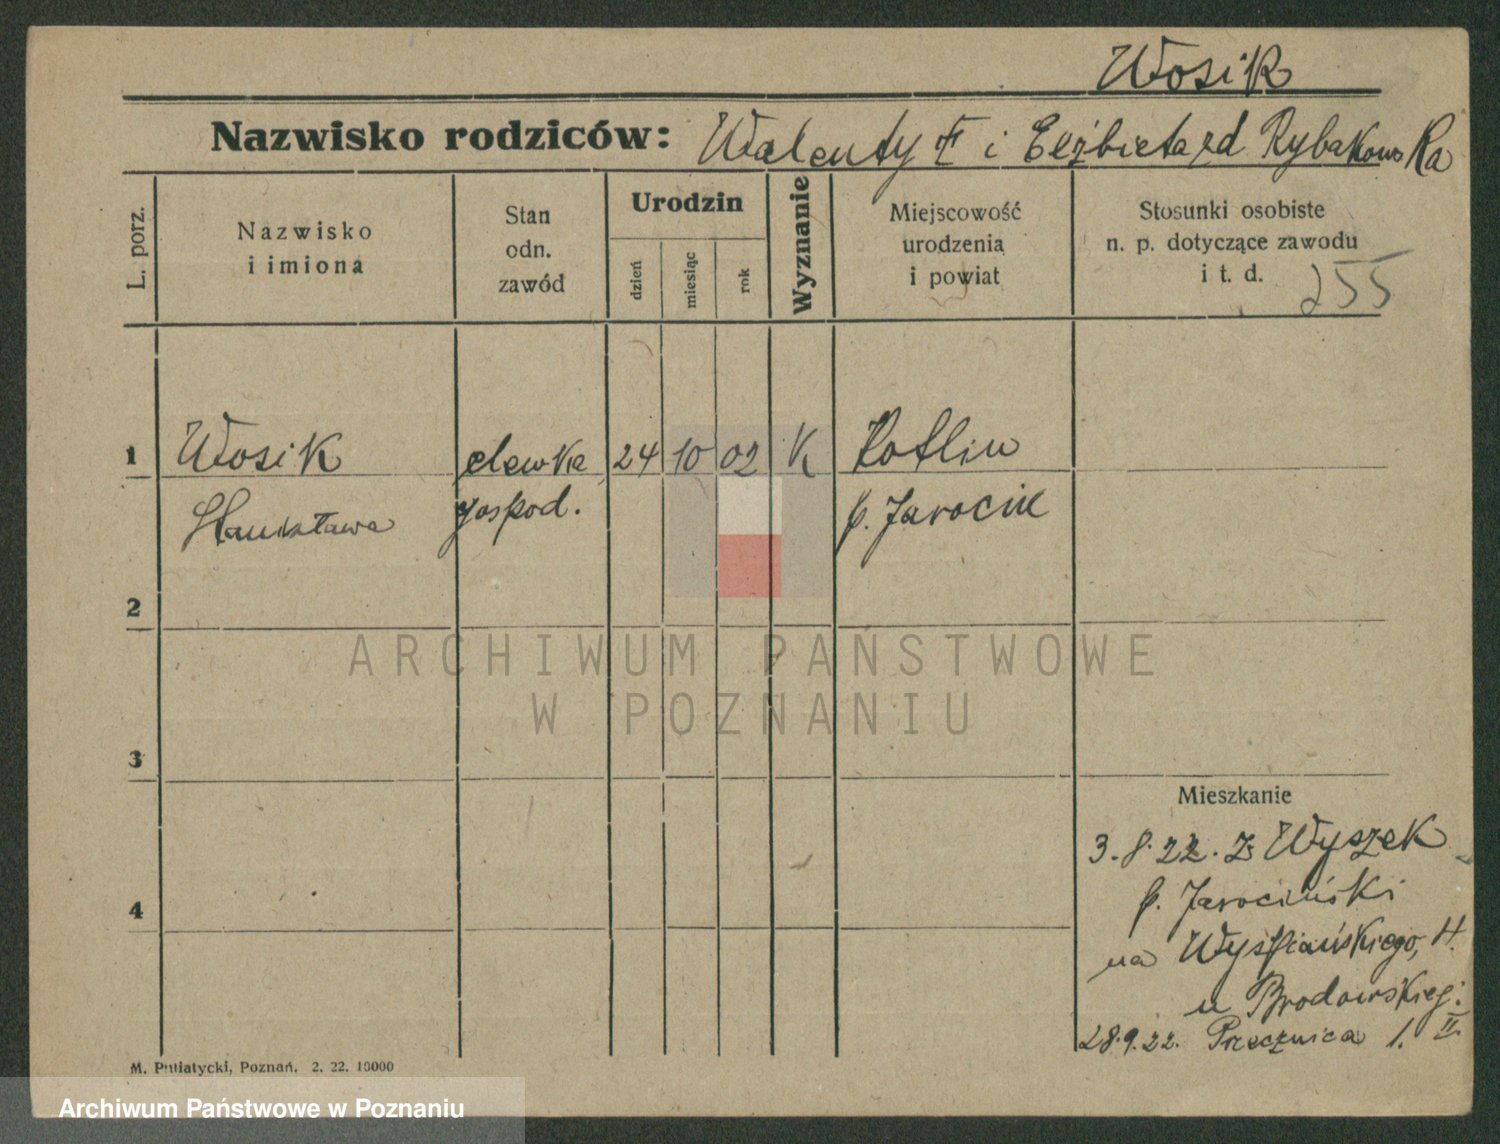 Włosik
Nazwisko rodziców: Walenty i Elżbieta zd Rybakowska
L. porz.
Nazwisko
i imiona
Stan
odn.
zawód
Urodzin
dzień
miesiąc
rok
Wyznanie
Miejscowość
urodzenia
i powiat
Stosunki osobiste
n. p. dotyczące zawodu
i t. d.
255
1 Włosik elewka 24 10 02 K Kotlin
Stanisława gospod. p. Jarocin
2
3
4
Mieszkanie
3.8.22. z Wyszek
p. Jarociński
na Wyspiańskiego,
u Brodowskiej.
28.9.22. Przecznica 1. II
M. Putiatycki, Poznań. 2. 22. 10000
ARCHIWUM PAŃSTWOWE
W POZNANIU
Archiwum Państwowe w Poznaniu